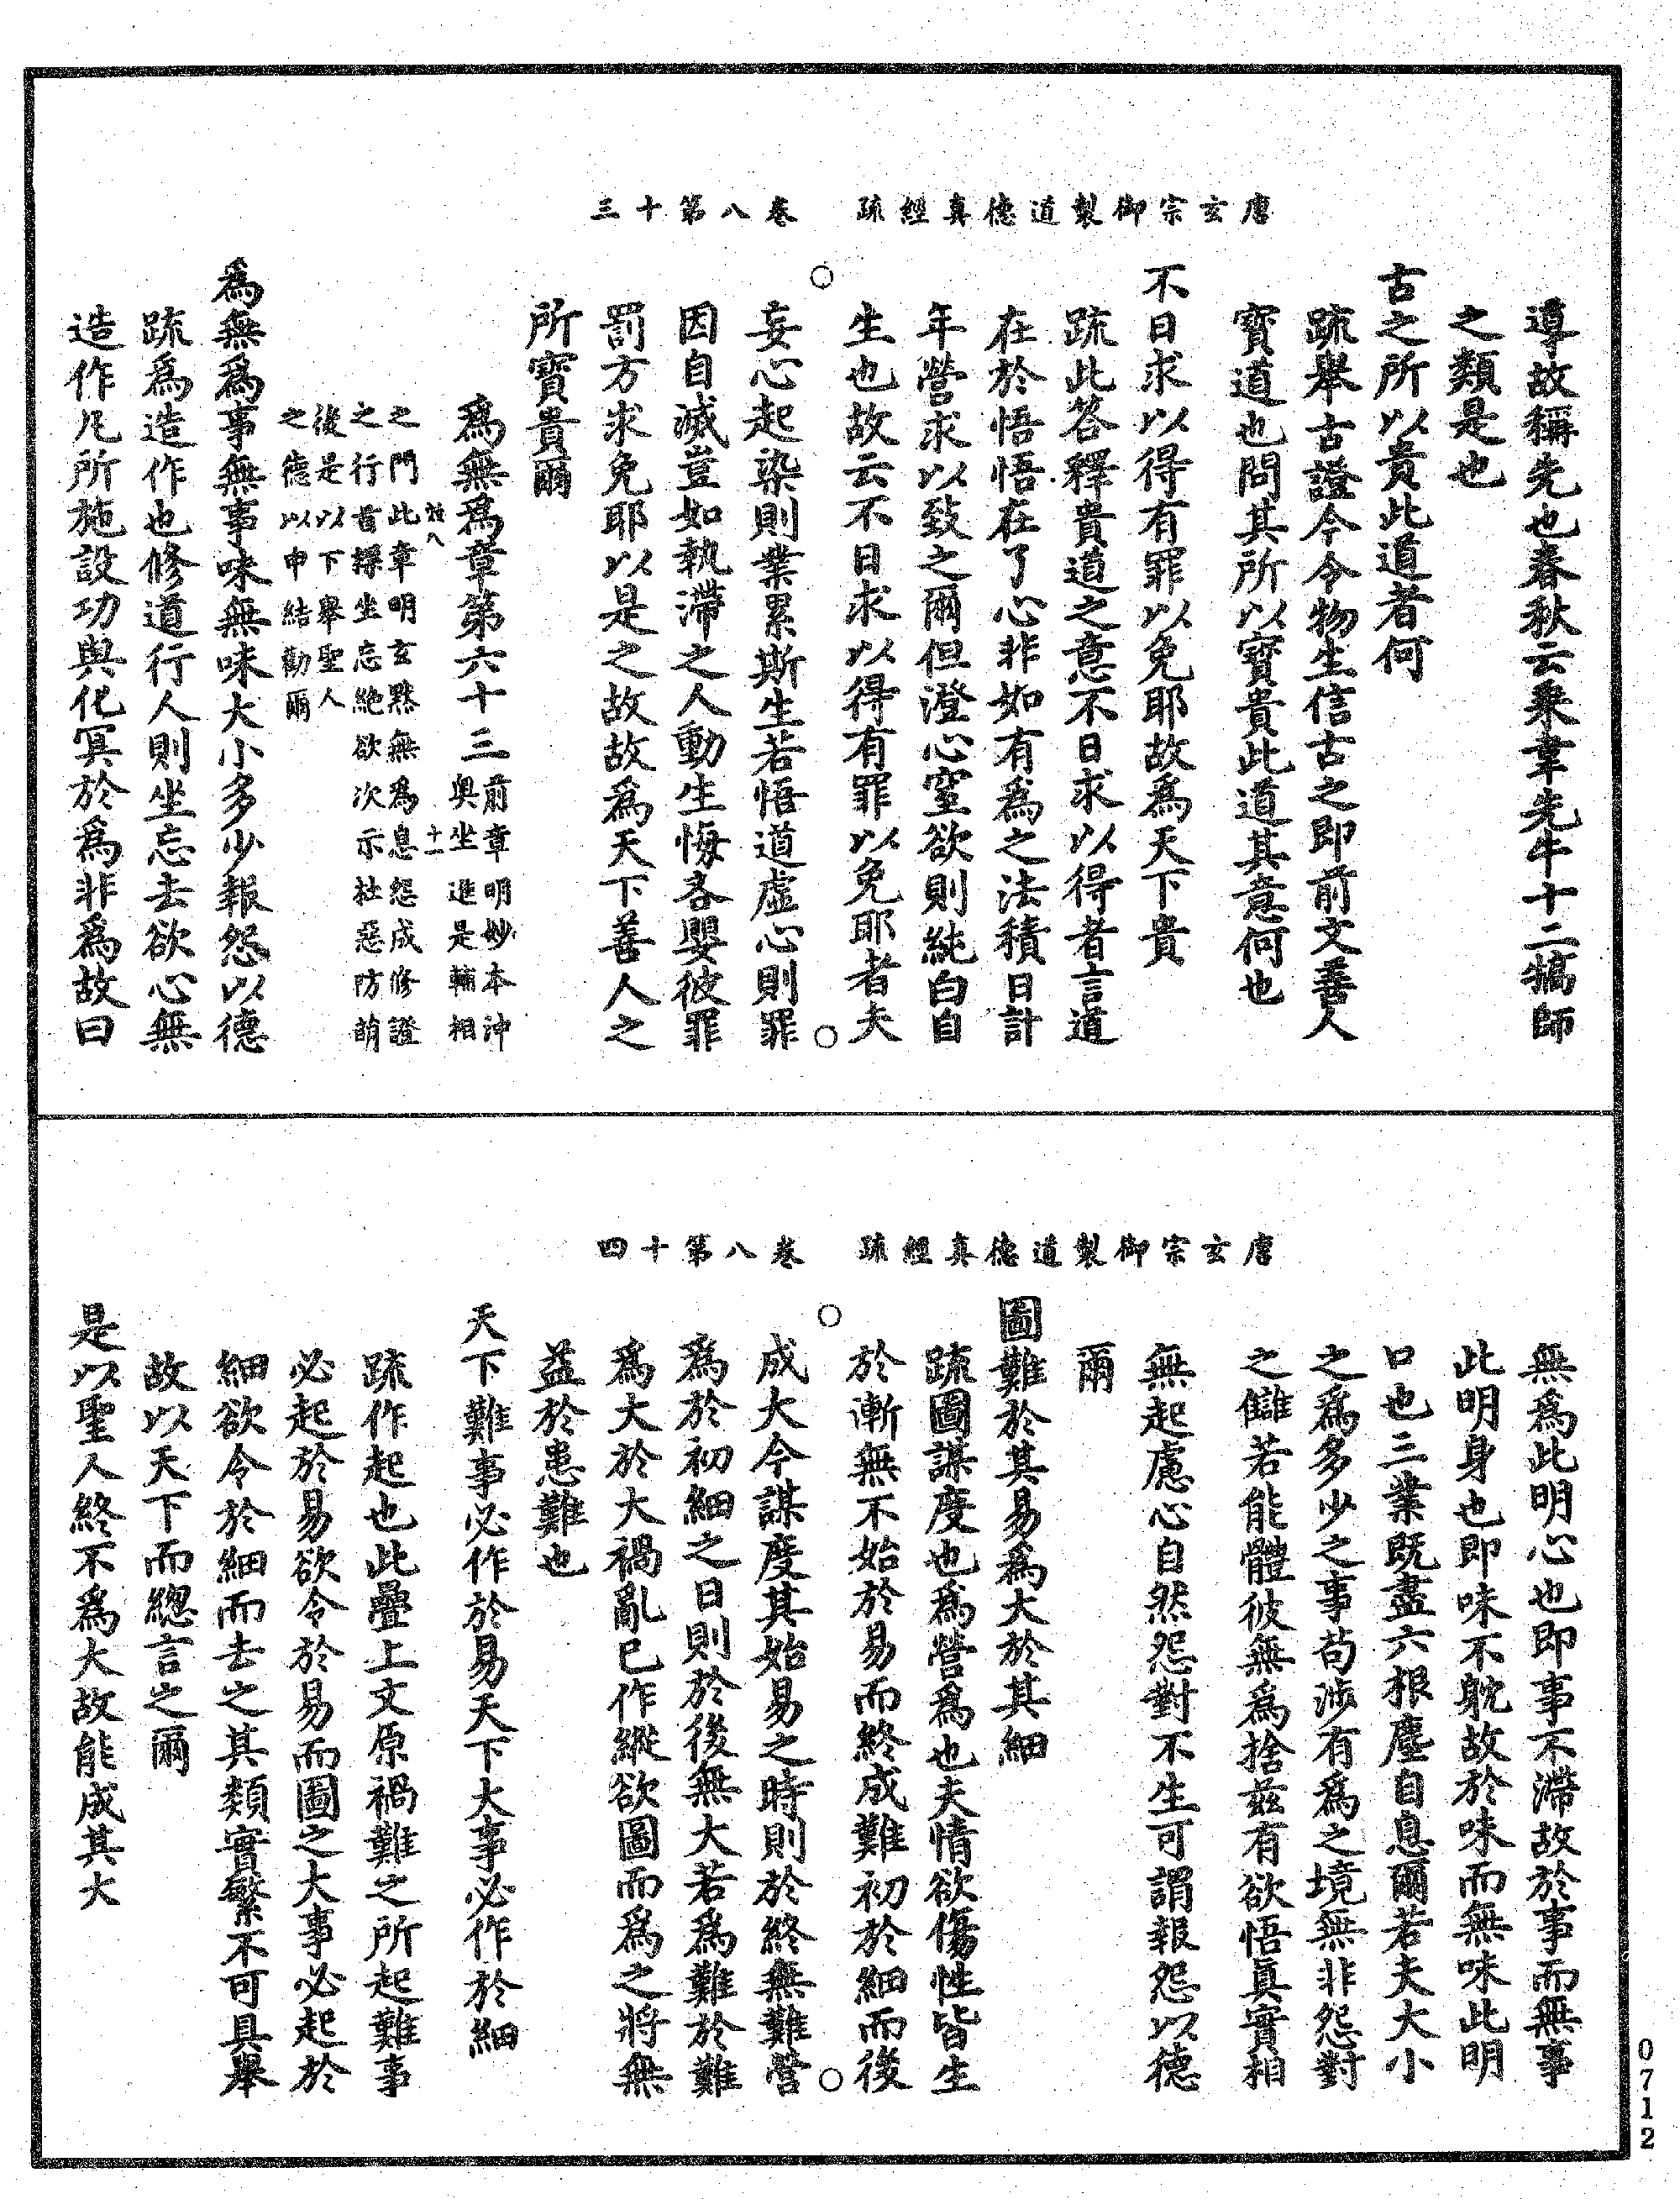 唐玄宗御製道德真經疏　卷八第十三
導故稱先也春秋云乘韋先牛十二犒師
之類是也
古之所以貴此道者何
疏舉古證今令物生信古之即前文善人
寶道也問其所以寶貴此道其意何也
不日求以得有罪以免耶故為天下貴
疏此答釋貴道之意不日求以得者言道
在於悟悟在了心非如有為之法積日計
年營求以致之爾但澄心窒欲則純白自
生也故云不日求以得有罪以免耶者夫
妄心起染則業累斯生若悟道虛心則罪
因自滅豈如執滯之人動生悔吝嬰彼罪
罰方求免耶以是之故故為天下善人之
所寶貴爾
為無為章第六十三
前章明妙本沖
奧坐進是輔相
效八　十一
之門此章明玄默無為息怨成修證
之行首標坐忘絕欲次示杜惡防萌
後是以下舉聖人
之德以申結勸爾
為無為事無事味無味大小多少報怨以德
疏為造作也修道行人則坐忘去欲心無
造作凡所施設功與化冥於為非為故曰
唐玄宗御製道德真經疏　卷八第十四
無為此明心也即事不滯故於事而無事
此明身也即味不耽故於味而無味此明
口也三業既盡六根塵自息爾若夫大小
之為多少之事苟涉有為之境無非怨對
之讎若能體彼無為捨茲有欲悟真實相
無起慮心自然怨對不生可謂報怨以德
爾
圖難於其易為大於其細
疏圖謀度也為營為也夫情欲傷性皆生
於漸無不始於易而終成難初於細而後
成大今謀度其始易之時則於終無難營
為於初細之日則於後無大若為難於難
為大於大禍亂已作縱欲圖而為之將無
益於患難也
天下難事必作於易天下大事必作於細
疏作起也此疊上文原禍難之所起難事
必起於易欲令於易而圖之大事必起於
細欲令於細而去之其類實繁不可具舉
故以天下而總言之爾
是以聖人終不為大故能成其大
0712